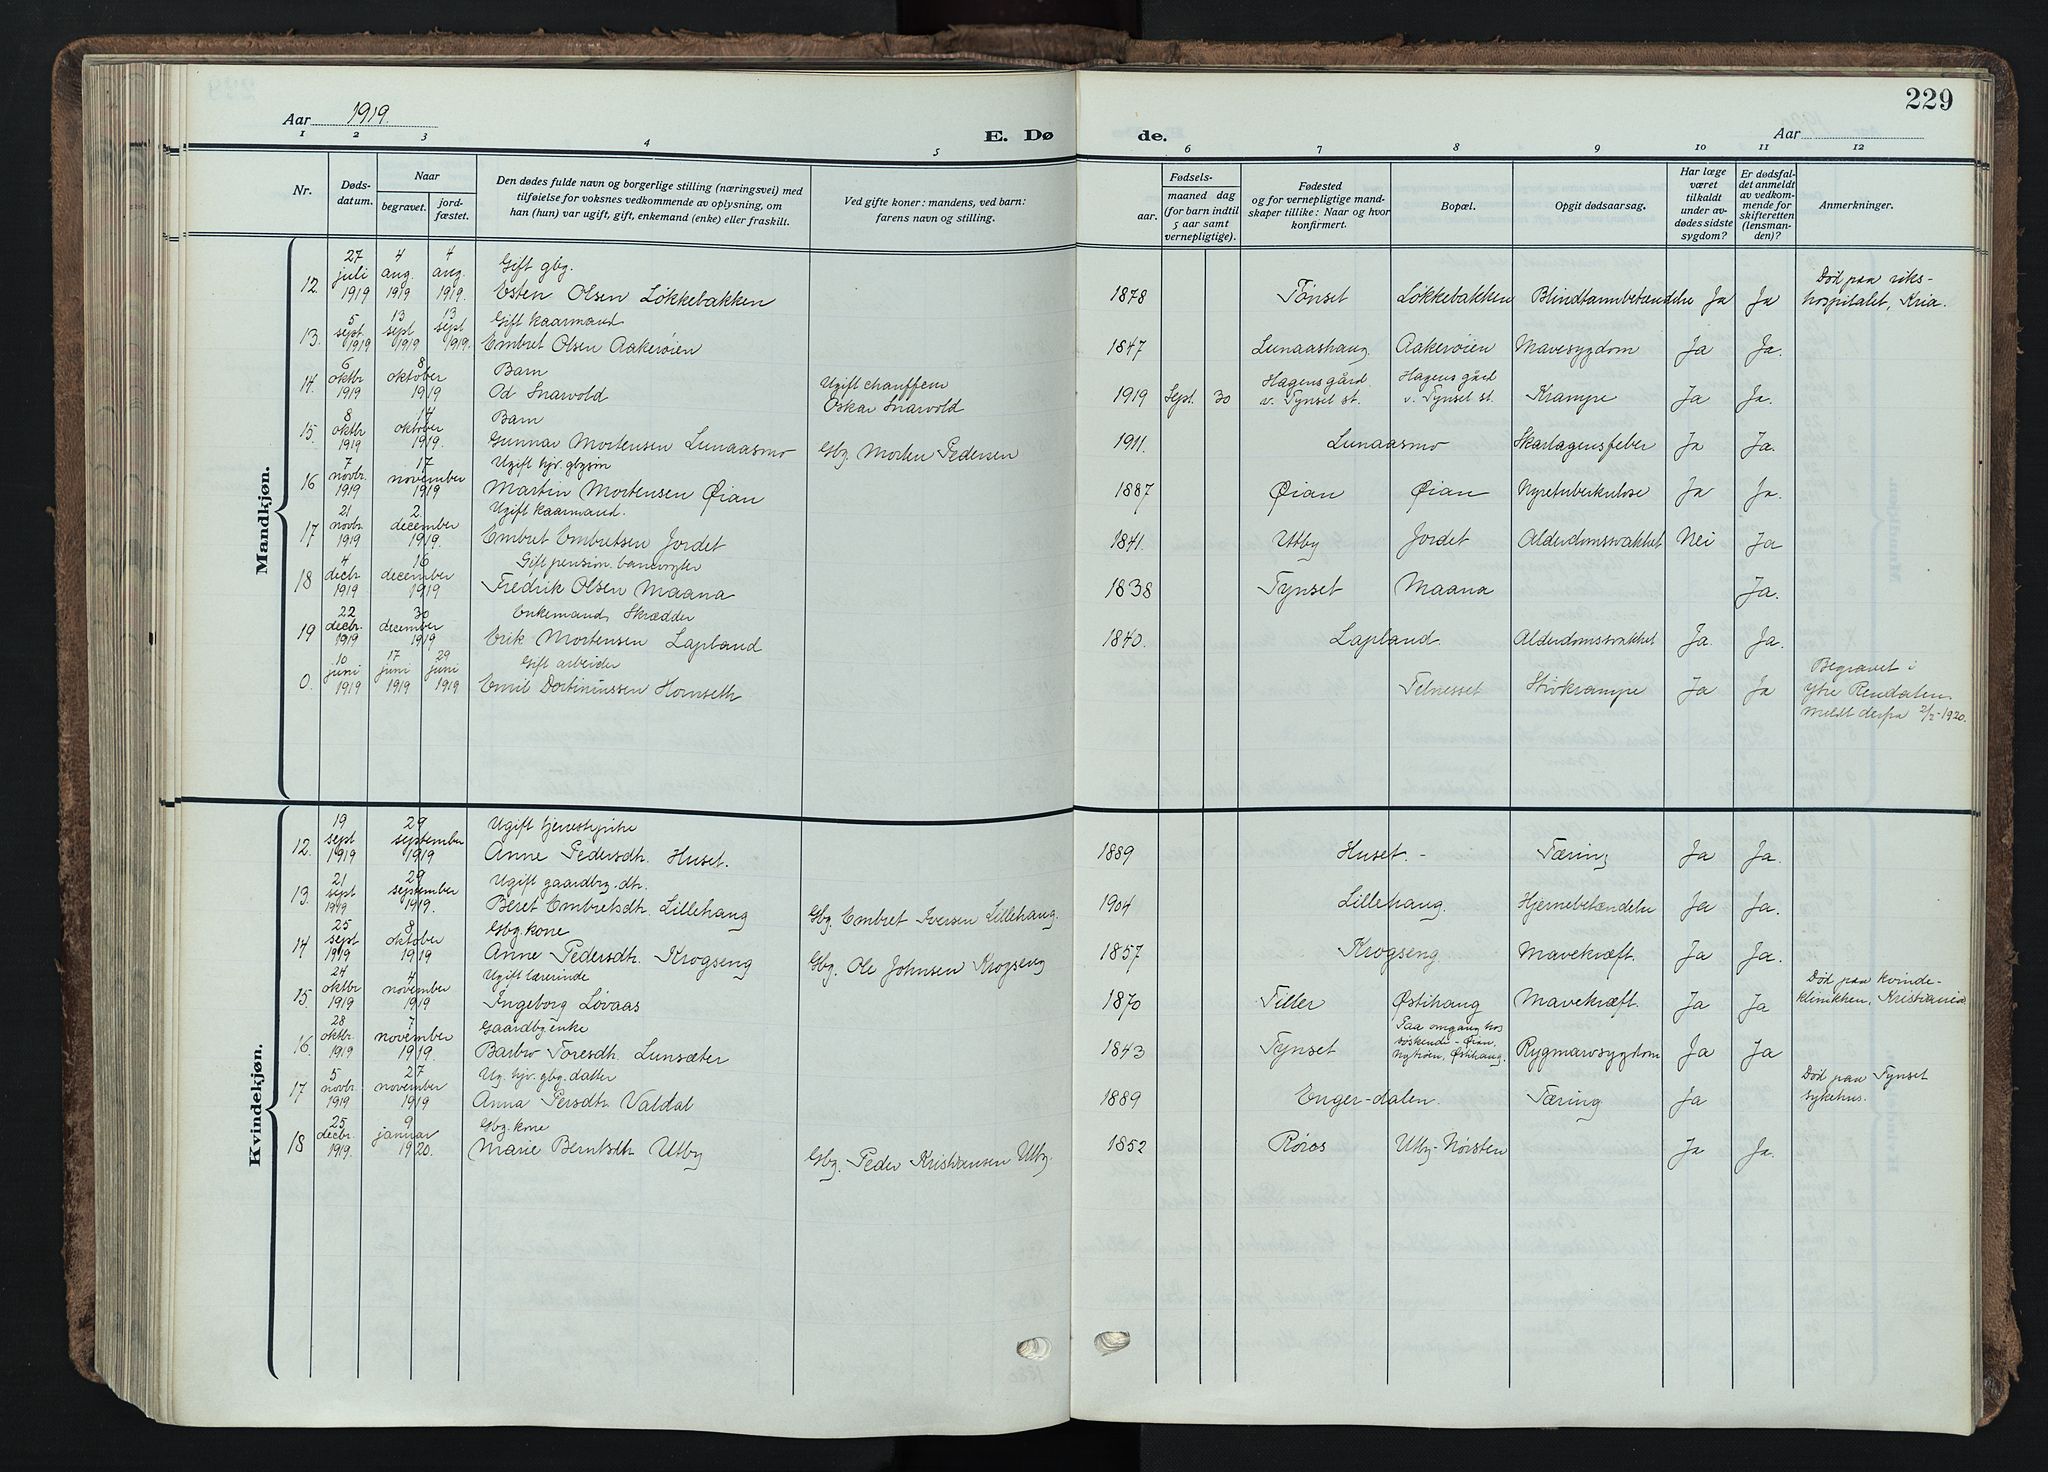 229
Aar 1919.
E. Døde.
Aar
1 2 3 4 5 6 7 8 9 10 11 12
Nr.
Dødsdatum.
Naar
begravet.
jordfæstet.
Den dødes fulde navn og borgerlige stilling (næringsvei) med
tilføielse for voksnes vedkommende av oplysning, om
han (hun) var ugift, gift, enkemand (enke) eller fraskilt.
Ved gifte koner: mandens, ved barn:
farens navn og stilling.
Fødsels-
aar.
maaned dag
(for barn indtil
5 aar samt
vernepligtige).
Fødested
og for vernepligtige mandskaper tillike: Naar og hvor
konfirmert.
Bopæl.
Opgit dødsaarsag.
Har læge
været
tilkaldt
under avdødes sidste
sygdom?
Er dødsfaldet anmeldt
av vedkommende for
skifteretten
(lensmanden)?
Anmerkninger.
Mandkjøn.
12. 27 juli 1919 4 aug. 1919 4 aug. 1919. Gift gbg. Esten Olsen Løkkebakken 1878 Tønset Løkkebakken Blindtarmbetændelse Ja Ja Død paa rikshospitalet, Kria.
13. 5 sept. 1919 13 sept 1919 13 sept 1919. Gift kaarmand Embret Olsen Aakerøien 1847 Lunaashaug Aakerøien Mavesygdom Ja Ja.
14. 6 oktbr 1919 8 oktober 1919 Barn Od Snarvold Ugift chauffeur Oskar Snarvold 1919 Sept. 30 Hagens gård v. Tynset st. Hagens gård v. Tynset st. Krampe Ja Ja.
15. 8 oktbr 1919 14 oktober 1919. Barn Gunnar Mortensen Lunaasmo Gbg. Morten Pedersen 1911. Lunaasmo Skarlagensfeber Ja Ja.
16 7 novbr. 1919 17 november 1919 Ugift hjv. gbgsøn Martin Mortensen Øian 1887 Øian Øian Nyretuberkulose Ja Ja.
17 21 novbr. 1919 2. december 1919. Ugift kaarmand. Embret Embretsen Jordet 1841. Utby Jordet Alderdomssvakhet Nei Ja
18 4 decbr. 1919 16 december 1919 Gift pension. banevogter Fredrik Olsen Maana 1838 Tynset Maana Ja.
19 22 decbr. 1919 30 december 1919 Enkemand, Skrædder Erik Mortensen Lapland 1840. Lapland Alderdomssvakhet Ja. Ja.
0. 10 juni 1919 17 juni 1919 29 juni 1919 Gift arbeider Emil Hornseth Telnesset Stivkrampe Ja Ja Begravet i ytre Rendalen. meldt derfra 2/2-1920.
Kvindekjøn.
12. 19 sept 1919 29 september 1919 Ugift tjenestepike Anne Pedersdtr. Huset. 1889 Huset. - Tæring Ja Ja.
13. 21 sept 1919 29 september 1919. Ugift gaardbrg. dtr. Beret Embretsdtr. Lillehaug Gbg. Embret Iversen Lillehaug. 1904 Lillehaug. Hjernebetændelse Ja Ja.
14 25 sept 1919 8 oktober 1919 Gbg. kone Anne Pedersdtr. Krogseng Gbg. Ole Johnsen Krogseng 1857 Krogseng Mavekræft. Ja Ja.
15. 24 oktbr 1919 4 november 1919 Ugift lærerinde Ingeborg Løvaas 1870 Tiller Østihaug Mavekræft. Ja Ja Død paa kvindeklinikken, Kristiania
16. 28 oktbr. 1919 7 november 1919. Gaardbg enke Barbro Toresdtr. Lunsæter 1843 Tynset Paa omgang hos søskende - Øian, Nytrøen, Østihaug. Rygmarvsygdom Ja Ja
17 5 novbr. 1919 27 november 1919 Ug. hjv. gbg. datter Anna Persdtr. Valdal 1889 Enger-dalen. Tæring Ja Død paa Tynset sykehus.
18 25 decbr. 1919. 9 januar 1920. Gbg. kone Marie Berntsdtr. Utby Gbg. Peder Kristiansen Utby. 1852 Røros Utby-Nørsten Ja Ja.